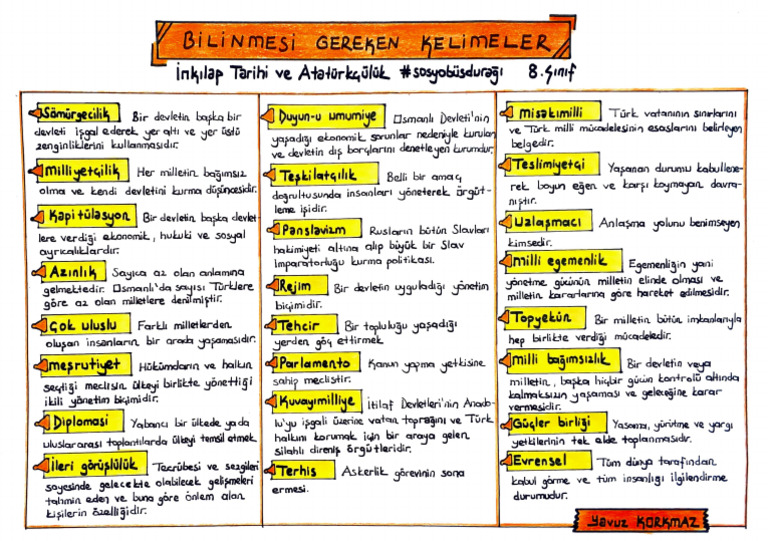 BİLİNMESİ GEREKEN KELİMELER
İnkılap Tarihi ve Atatürkçülük #sosyobüsdurağı 8.Sınıf
Sömürgecilik Bir devletin başka bir
devleti işgal ederek yer altı ve yer üstü
zenginliklerini kullanmasıdır.
Milliyetçilik Her milletin bağımsız
olma ve kendi devletini kurma düşüncesidir.
Kapitülasyon Bir devletin başka devlet-
lere verdiği ekonomik, hukuki ve sosyal
ayrıcalıklardır.
Azınlık Sayıca az olan anlamına
gelmektedir. Osmanlı'da sayısı Türklere
göre az olan milletlere denilmiştir.
Çok uluslu Farklı milletlerden
oluşan insanların bir arada yaşamasıdır.
meşrutiyet Hükümdarın ve halkın
seçtiği meclisin ülkeyi birlikte yönettiği
ikili yönetim biçimidir.
Diplomasi Yabancı bir ülkede ya da
uluslararası toplantılarda ülkeyi temsil etmek.
İleri görüşlülük Tecrübesi ve sezgileri
sayesinde gelecekte olabilecek gelişmeleri
tahmin eden ve buna göre önlem alan
kişilerin özelliğidir.
Duyun-u umumiye Osmanlı Devleti'nin
yaşadığı ekonomik sorunlar nedeniyle kurulan
ve devletin dış borçlarını denetleyen kurumdur.
Teşkilatçılık Belli bir amaç
doğrultusunda insanları yöneterek örgüt-
leme işidir.
Panslavizm Rusların bütün Slavları
hakimiyeti altına alıp büyük bir Slav
imparatorluğu kurma politikası.
Rejim Bir devletin uyguladığı yönetim
biçimidir.
Tehcir Bir topluluğu yaşadığı
yerden göç ettirmek
Parlamento Kanun yapma yetkisine
sahip meclistir.
Kuvayımilliye İtilaf Devletleri'nin Anado-
lu'yu işgali üzerine vatan toprağını ve Türk
halkını korumak için bir araya gelen
silahlı direniş örgütleridir.
Terhis Askerlik görevinin sona
ermesi.
Misakımilli Türk vatanının sınırlarını
ve Türk milli mücadelesinin esaslarını belirleyen
belgedir.
Teslimiyetçi Yaşanan durumu kabullene-
rek boyun eğen ve karşı koymayan davra-
nıştır.
Uzlaşmacı Anlaşma yolunu benimseyen
kimsedir.
Milli egemenlik Egemenliğin yani
yönetme gücünün milletin elinde olması ve
milletin kararlarına göre hareket edilmesidir.
Topyekün Bir milletin bütün imkanlarıyla
hep birlikte verdiği mücadeledir.
Milli bağımsızlık Bir devletin veya
milletin, başka hiçbir gücün kontrolü altında
kalmaksızın yaşaması ve geleceğine karar
vermesidir.
Güçler birliği Yasama, yürütme ve yargı
yetkilerinin tek elde toplanmasıdır.
Evrensel Tüm dünya tarafından
kabul görme ve tüm insanlığı ilgilendirme
durumudur.
Yavuz KORKMAZ